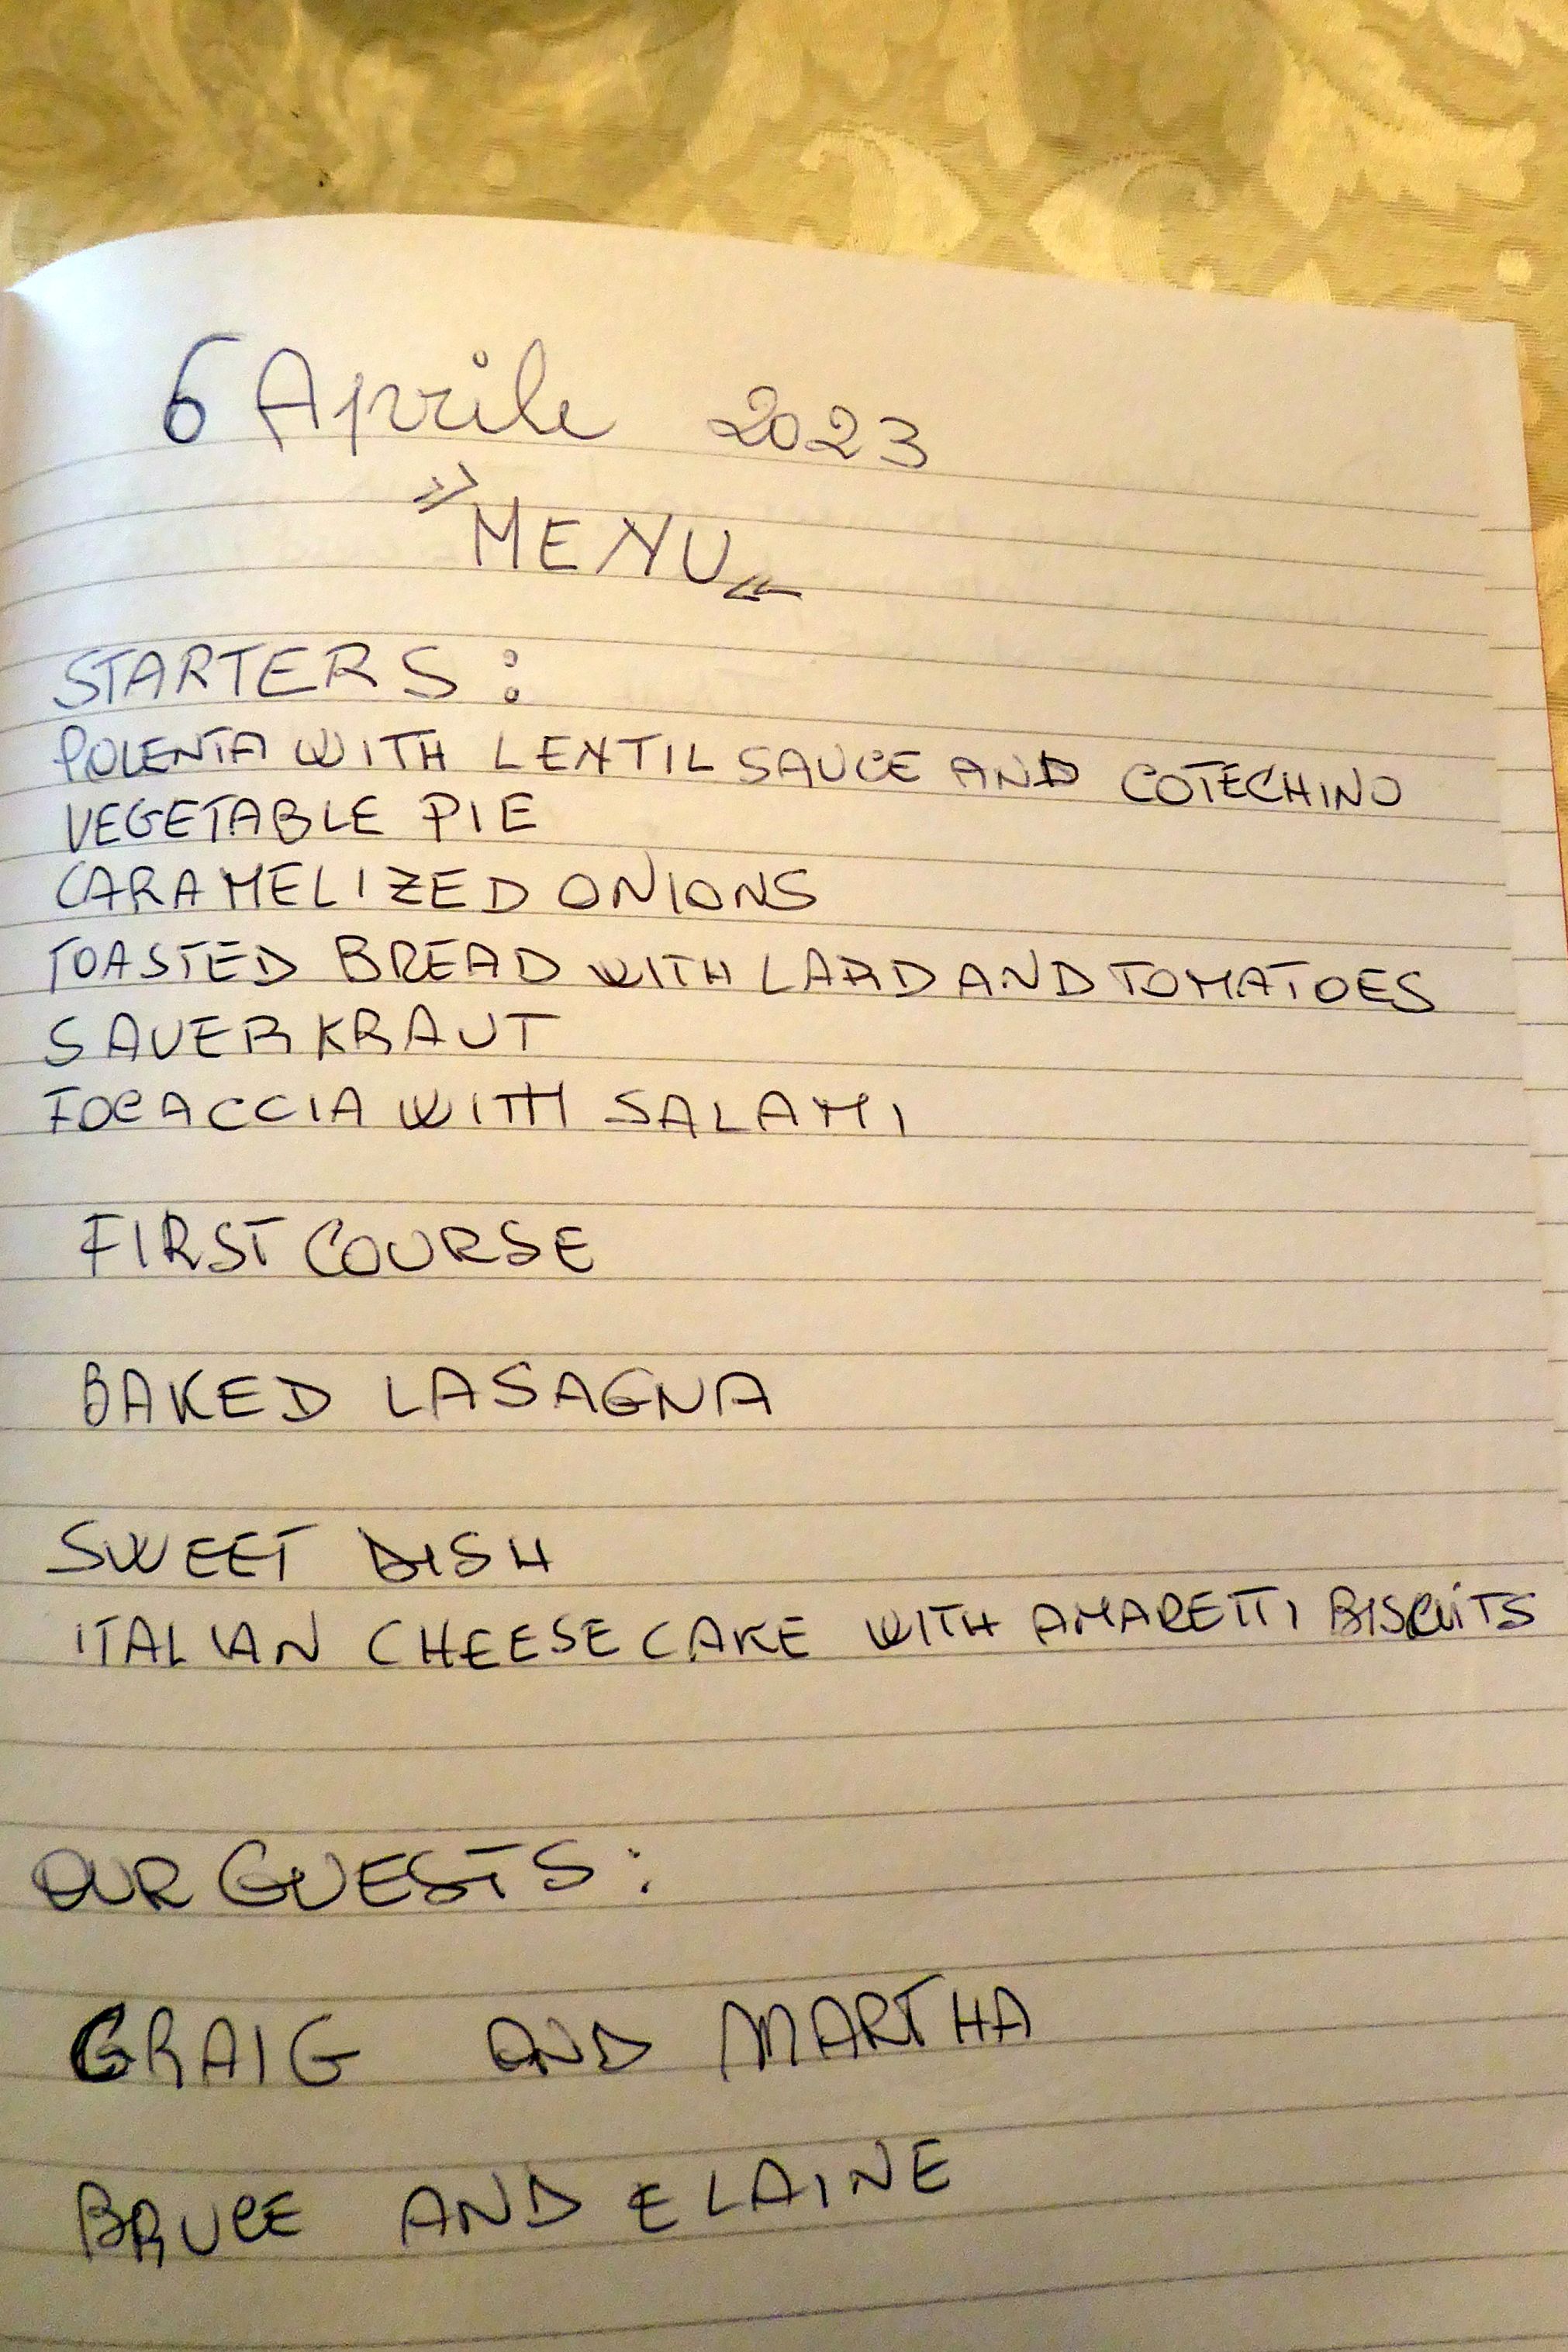 6 Aprile 2023
»MENU«
STARTERS:
POLENTA WITH LENTIL SAUCE AND COTECHINO
VEGETABLE PIE
CARAMELIZED ONIONS
TOASTED BREAD WITH LARD AND TOMATOES
SAUERKRAUT
FOCACCIA WITH SALAMI
FIRST COURSE
BAKED LASAGNA
SWEET DISH
ITALIAN CHEESECAKE WITH AMARETTI BISCUITS
OUR GUESTS:
CRAIG AND MARTHA
BRUCE AND ELAINE